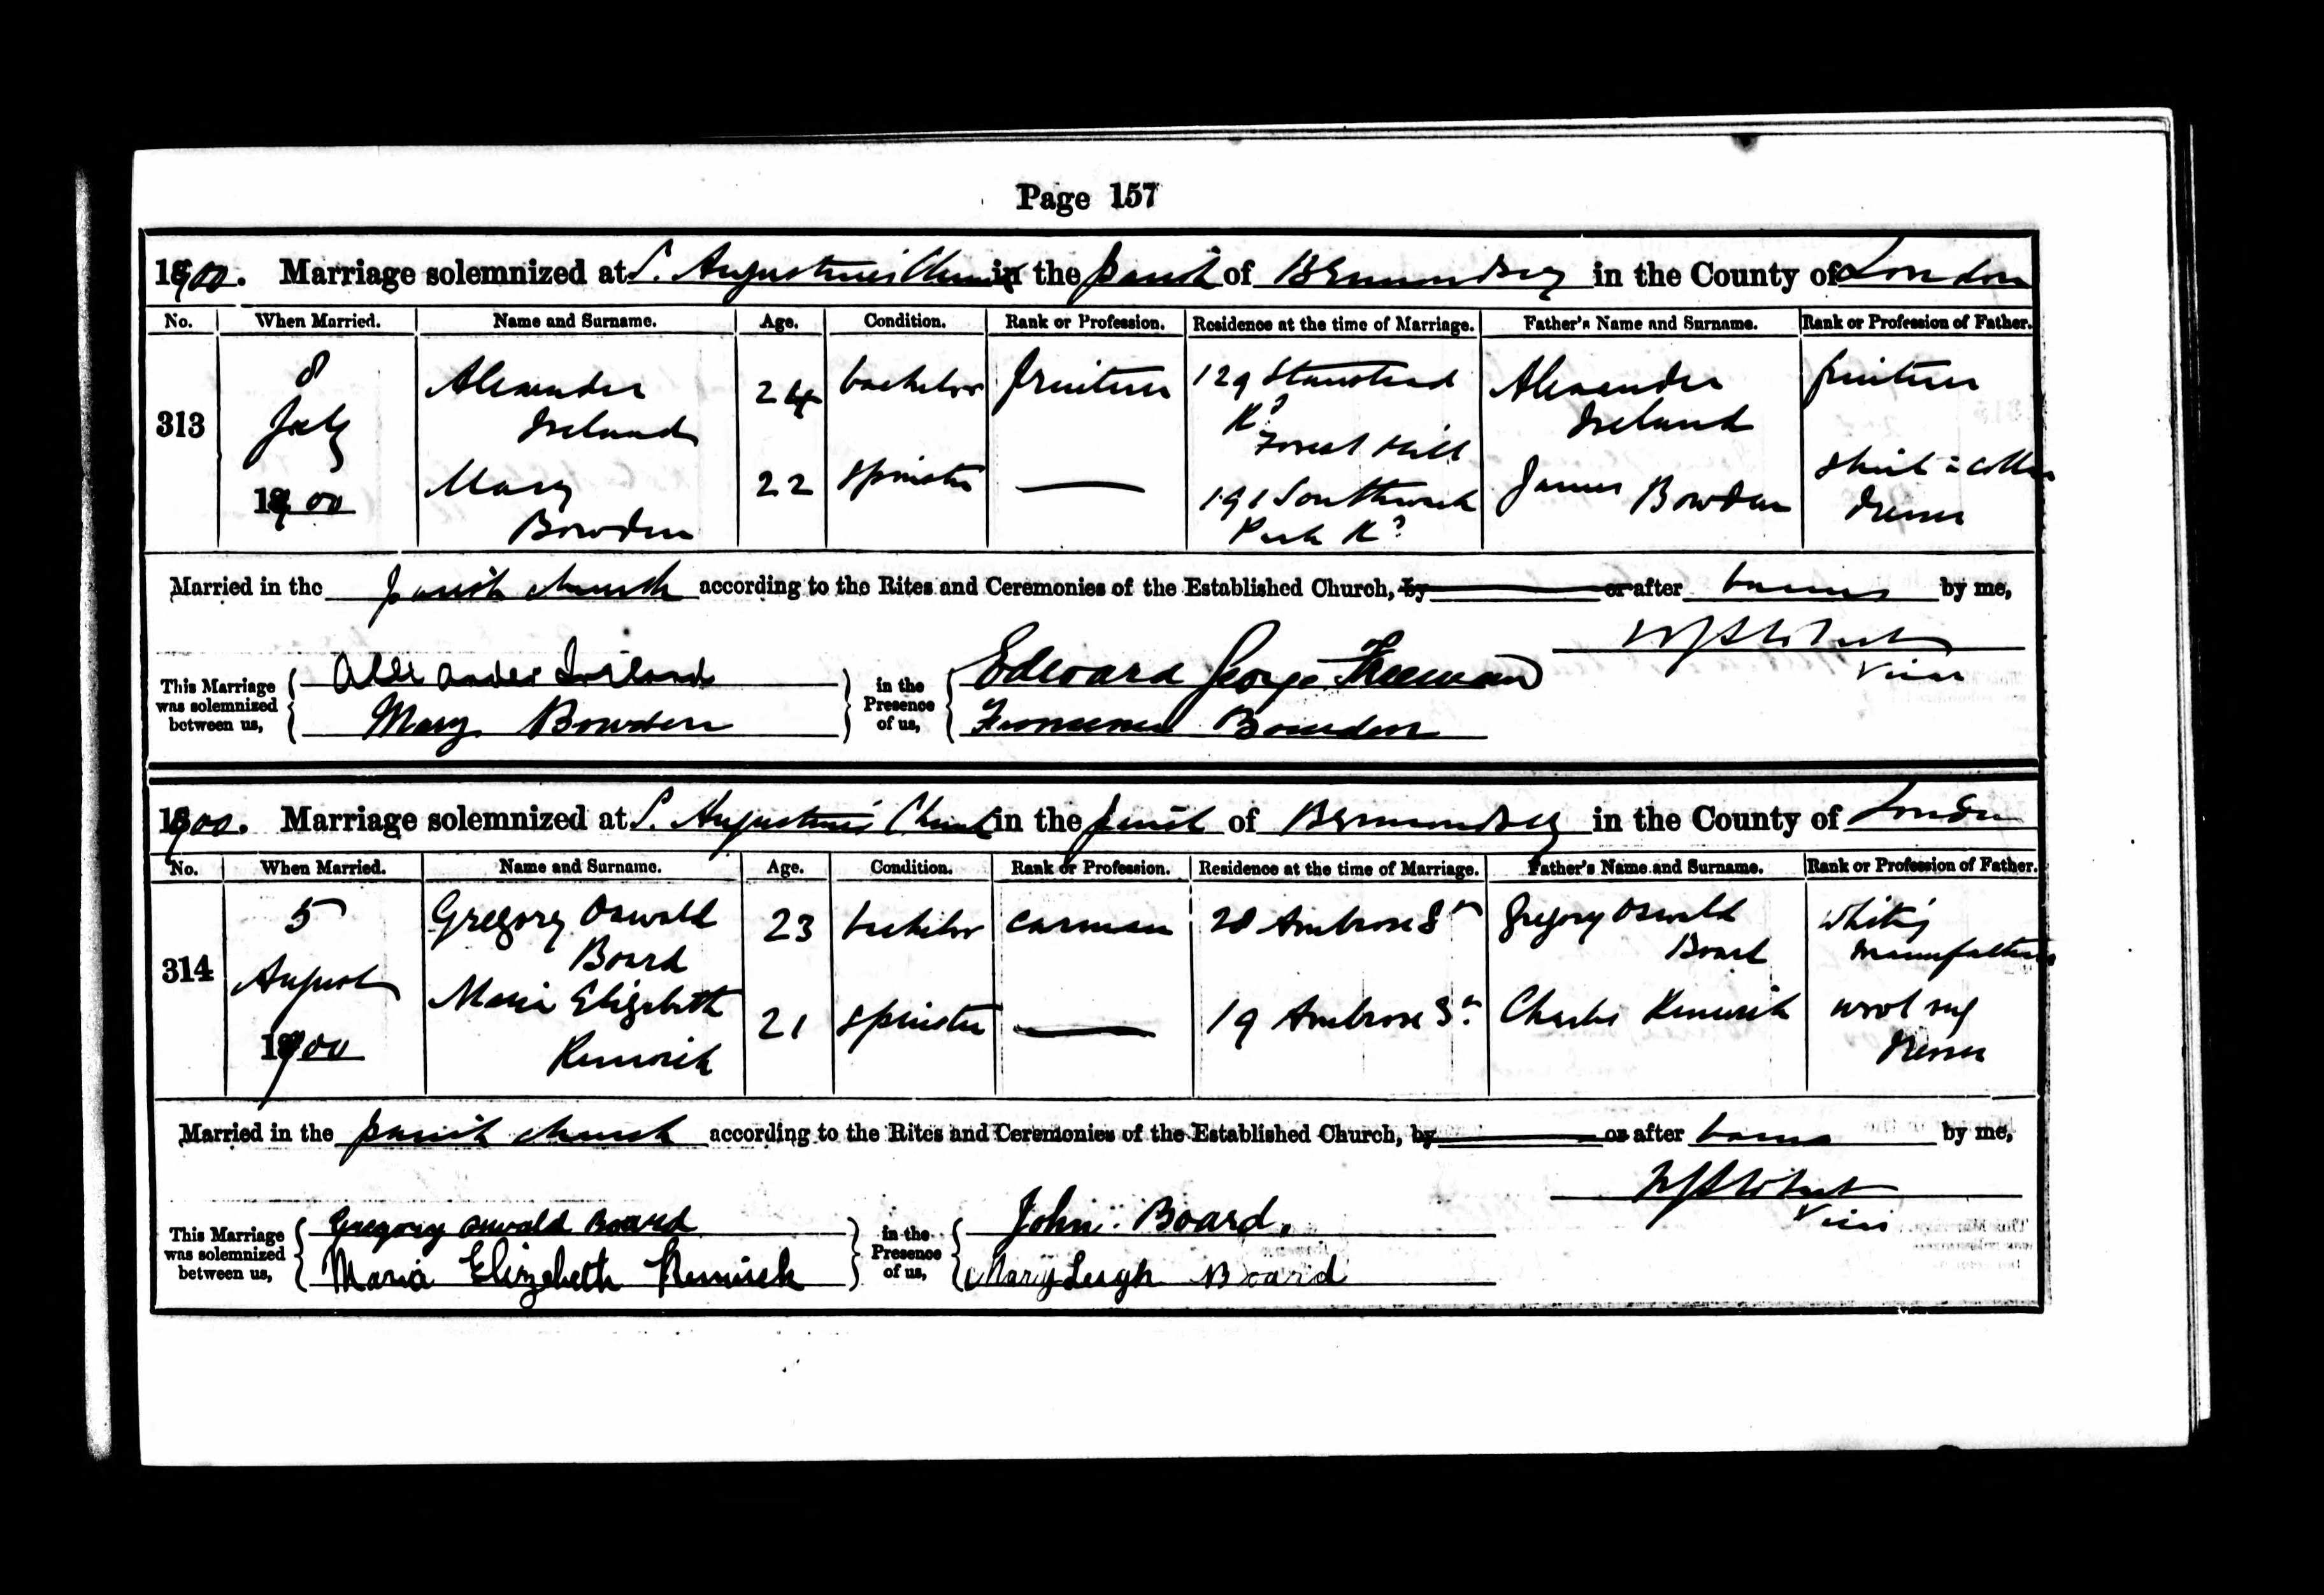 Page 157
1900. Marriage solemnized at S. Augustine's Church in the parish of Bermondsey in the County of London
No. When Married. Name and Surname. Age. Condition. Rank or Profession. Residence at the time of Marriage. Father's Name and Surname. Rank or Profession of Father.
313 8 July 1900 Alexander Ireland 24 bachelor fruiterer 129 Stanstead Rd Forest Hill Alexander Ireland fruiterer
Mary Bowden 22 spinster — 191 Southwark Park Rd James Bowden shirt & collar dresser
Married in the parish church according to the Rites and Ceremonies of the Established Church, by or after banns by me,
Vicar
This Marriage was solemnized between us, Alexander Ireland Mary Bowden in the Presence of us, Edward George Freeman Bowden
1900. Marriage solemnized at S. Augustine's Church in the parish of Bermondsey in the County of London
No. When Married. Name and Surname. Age. Condition. Rank or Profession. Residence at the time of Marriage. Father's Name and Surname. Rank or Profession of Father.
314 5 August 1900 Gregory Oswald Board 23 bachelor carman 28 Ambrose St Gregory Oswald Board whiting manufacturer
Maria Elizabeth Renwick 21 spinster — 19 Ambrose St. Charles Renwick wool rug dresser
Married in the parish church according to the Rites and Ceremonies of the Established Church, by or after banns by me,
Vicar
This Marriage was solemnized between us, Gregory Oswald Board Maria Elizebeth Renwick in the Presence of us, John Board. Mary Leigh Board